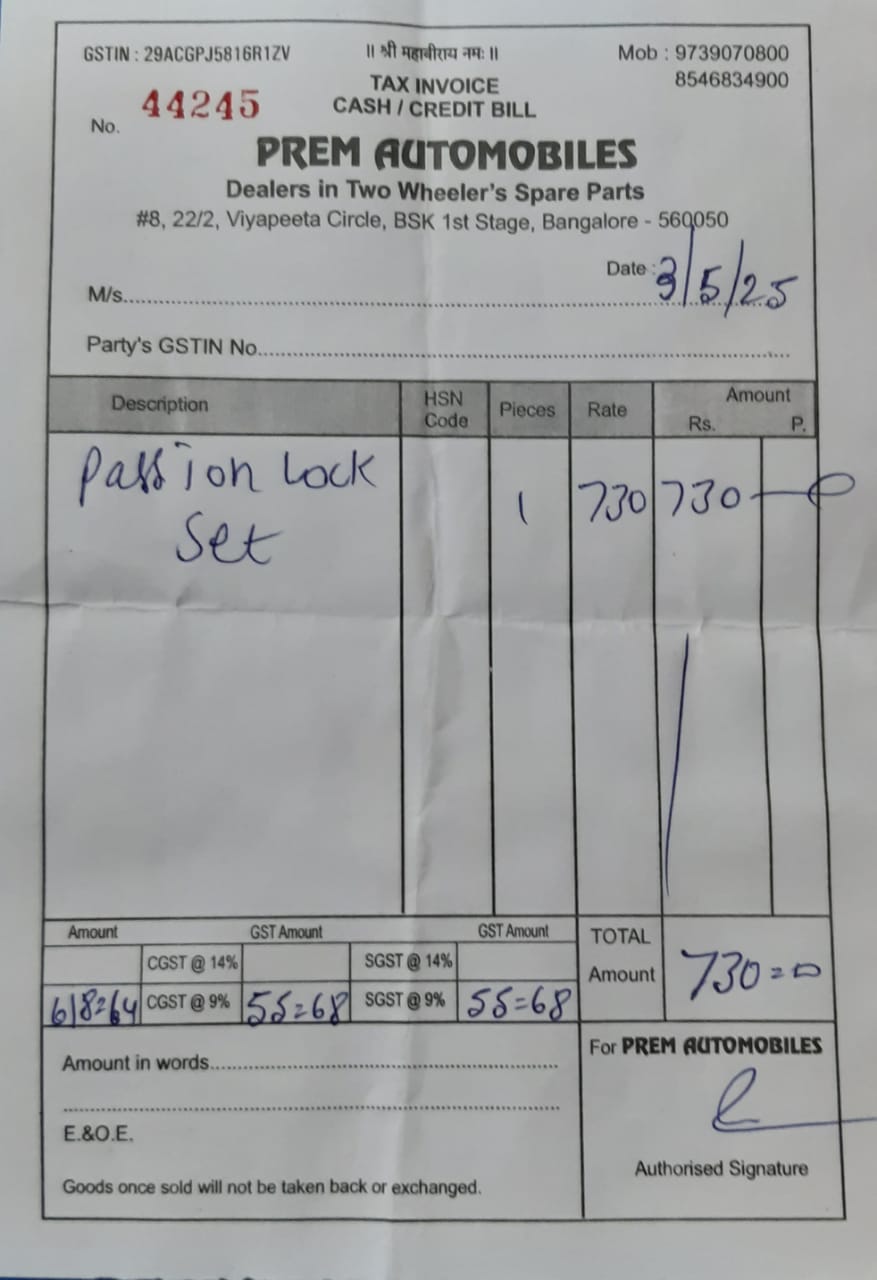 GSTIN : 29ACGPJ5816R1ZV
॥ श्री महावीराय नमः ॥
Mob : 9739070800
8546834900
TAX INVOICE
CASH / CREDIT BILL
No. 44245
PREM AUTOMOBILES
Dealers in Two Wheeler's Spare Parts
#8, 22/2, Viyapeeta Circle, BSK 1st Stage, Bangalore - 560050
Date : 3/5/25
M/s.
Party's GSTIN No.
Description HSN Code Pieces Rate Amount Rs. P.
Passion Lock 1 730 730
Set
Amount GST Amount GST Amount
CGST @ 14% SGST @ 14%
618=64 CGST @ 9% 55=68 SGST @ 9% 55=68
TOTAL Amount 730=0
Amount in words
For PREM AUTOMOBILES
E.&O.E.
Authorised Signature
Goods once sold will not be taken back or exchanged.